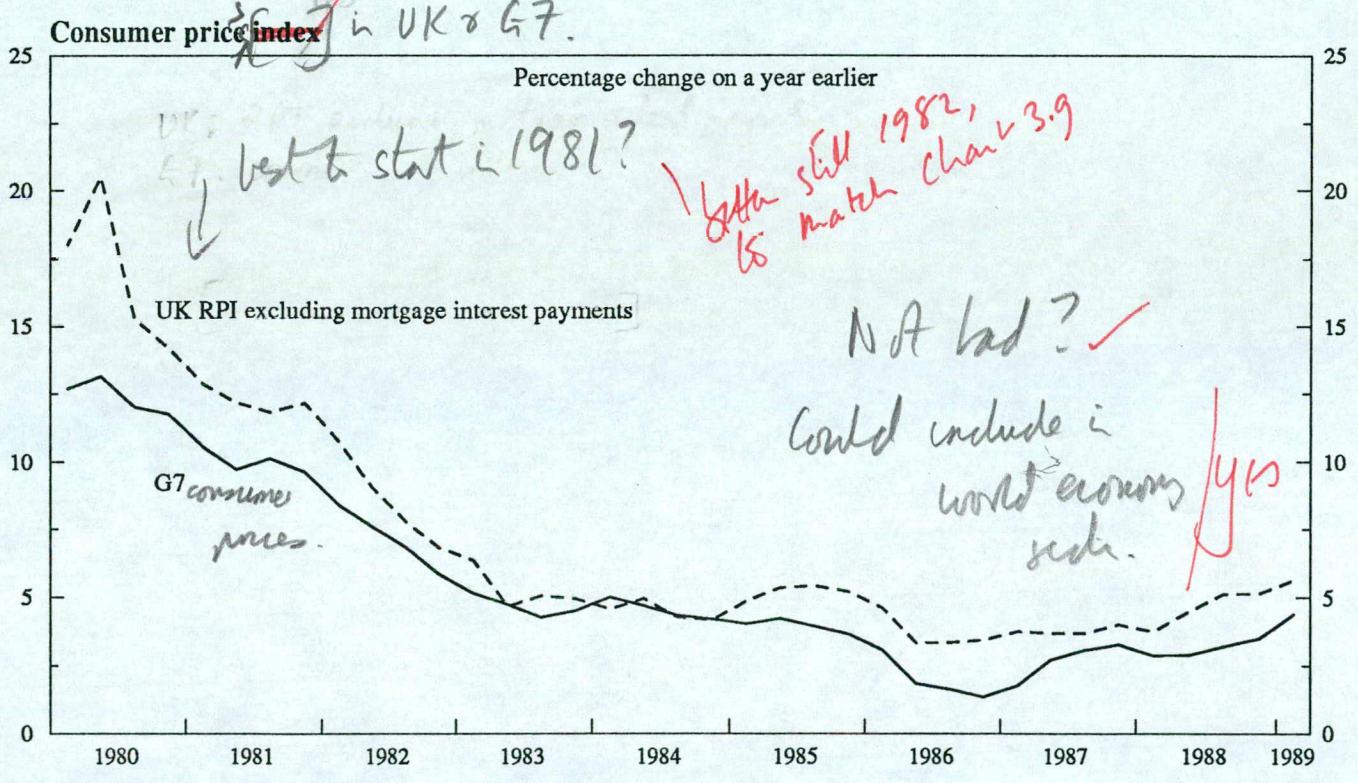 Consumer price index
in UK & G7.
25 25
Percentage change on a year earlier
best to start in 1981?
better still 1982,
to match chart 3.9
20 20
UK RPI excluding mortgage interest payments
15 15
Not bad?
Could include in
world economy
yes
10 10
G7 consumer
prices.
5 5
0 0
1980 1981 1982 1983 1984 1985 1986 1987 1988 1989